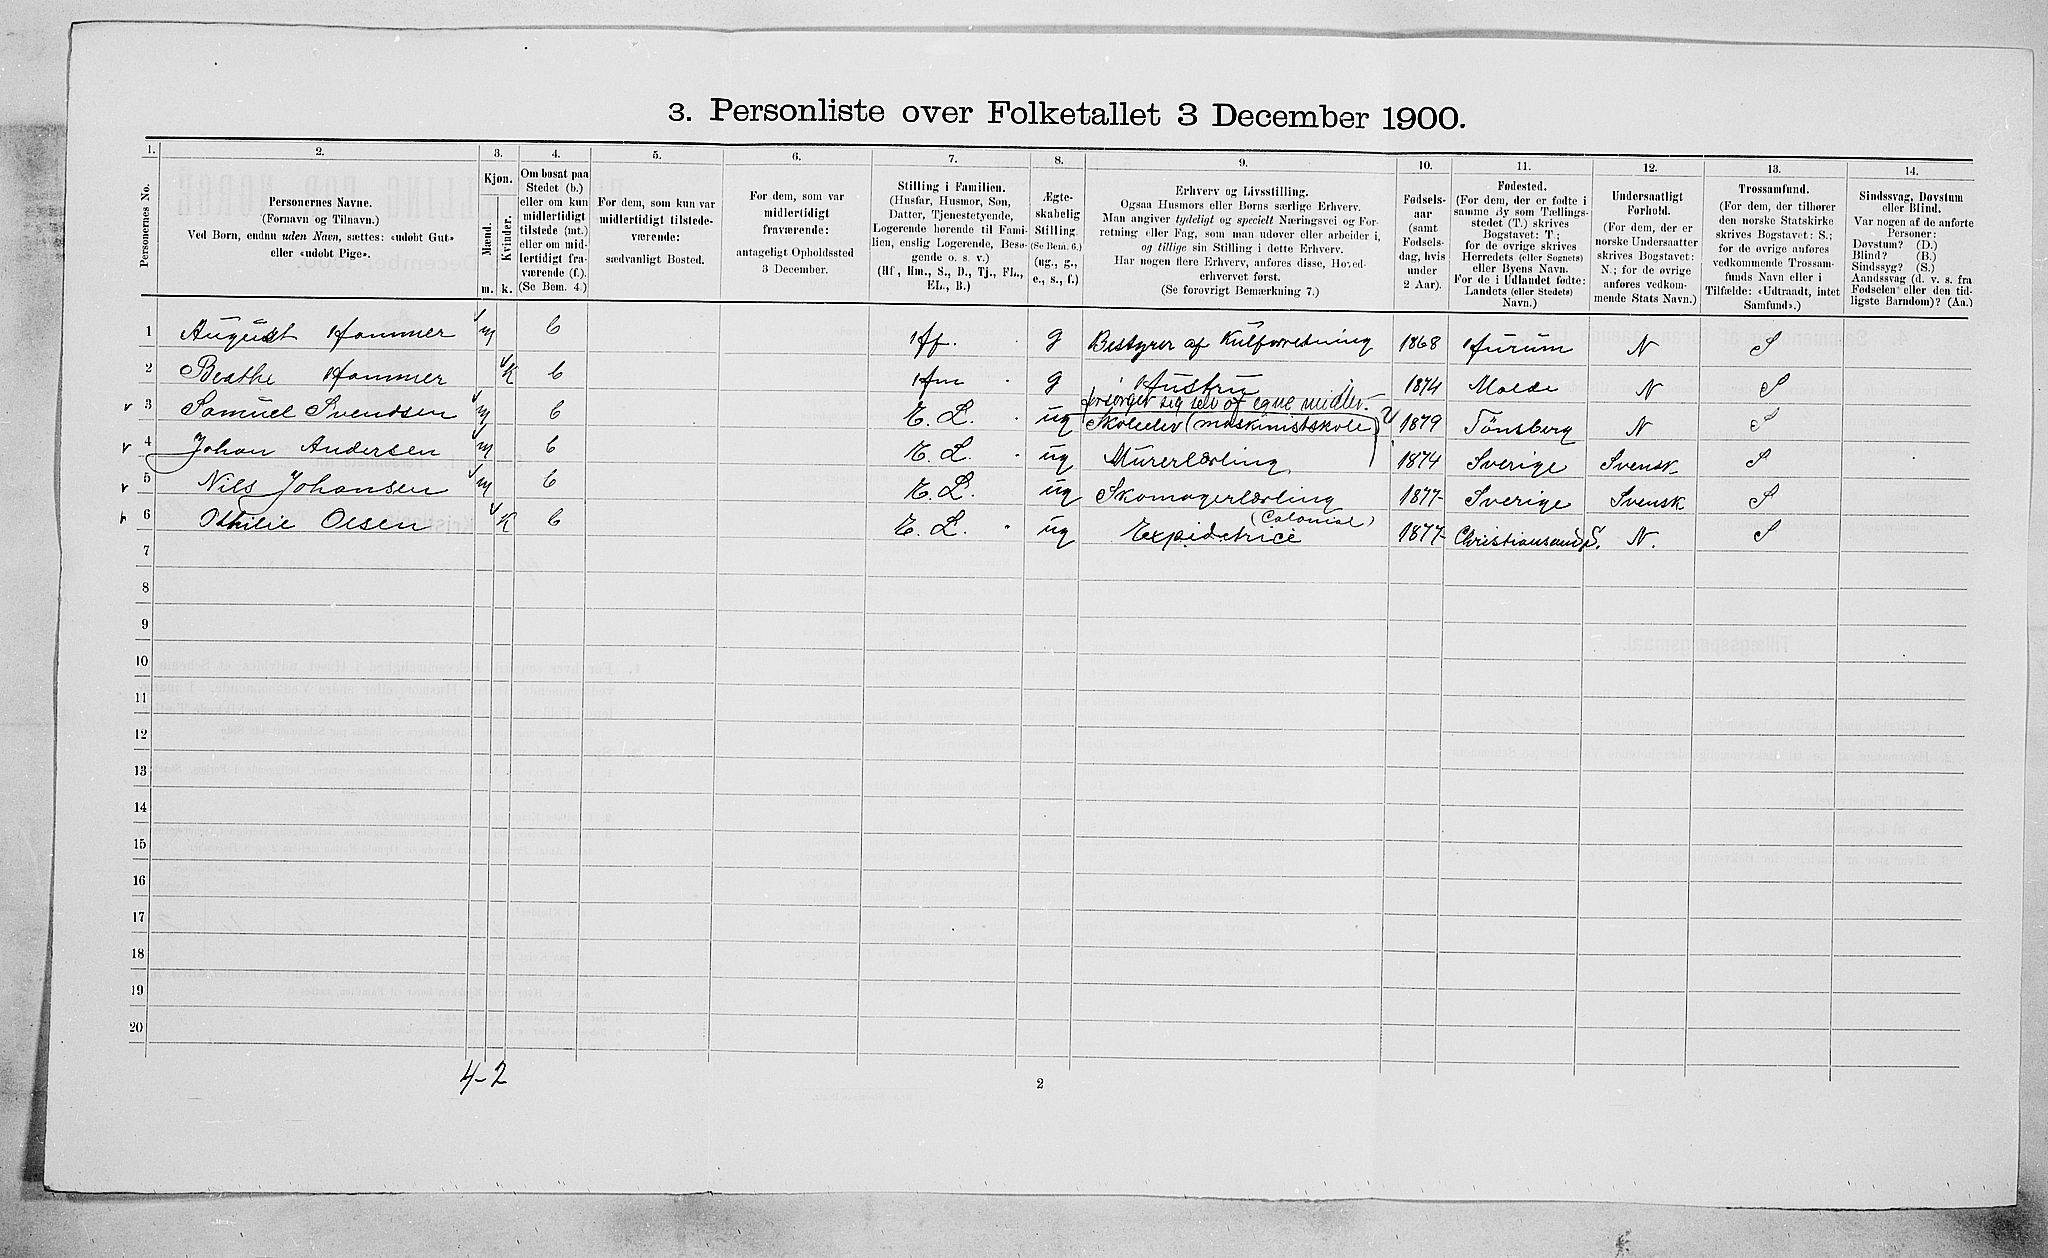 3. Personliste over Folketallet 3 December 1900.
1. 2. 3. 4. 5. 6. 7. 8. 9. 10. 11. 12. 13. 14.
Personernes No.
Personernes Navne.
(Fornavn og Tilnavn.)
Ved Børn, endnu uden Navn, sættes: «udøbt Gut»
eller «udøbt Pige».
Kjøn.
Mænd.
Kvinder.
m. k.
Om bosat paa
Stedet (b.)
eller om kun
midlertidigt
tilstede (mt.)
eller om mid-
lertidigt fra-
værende (f.).
(Se Bem. 4.)
For dem, som kun var
midlertidigt tilstede-
værende:
sædvanligt Bosted.
For dem, som var
midlertidigt
fraværende:
antageligt Opholdssted
3 December.
Stilling i Familien.
(Husfar, Husmor, Søn,
Datter, Tjenestetyende,
Logerende hørende til Fami-
lien, enslig Logerende, Besø-
gende o. s. v.)
(Hf., Hm., S., D., Tj., FL.,
EL., B.)
Ægte-
skabelig
Stilling.
(Se Bem. 6.)
(ug., g.,
e., s., f.)
Erhverv og Livsstilling.
Ogsaa Husmors eller Børns særlige Erhverv.
Man angiver tydeligt og specielt Næringsvei og For-
retning eller Fag, som man udøver eller arbeider i,
og tillige sin Stilling i dette Erhverv.
Har nogen flere Erhverv, anføres disse, Hoved-
erhvervet først.
(Se forøvrigt Bemærkning 7.)
Fødsels-
aar
(samt
Fødsels-
dag, hvis
under
2 Aar).
Fødested.
(For dem, der er fødte i
samme By som Tællings-
stedet (T.) skrives
Bogstavet: T.;
for de øvrige skrives
Herredets (eller Sognets)
eller Byens Navn.
For de i Udlandet fødte:
Landets (eller Stedets)
Navn.)
Undersaatligt
Forhold.
(For dem, der er
norske Undersaatter
skrives Bogstavet:
N.; for de øvrige
anføres vedkom-
mende Stats Navn.)
Trossamfund.
(For dem, der tilhører
den norske Statskirke
skrives Bogstavet: S.;
for de øvrige anføres
vedkommende Trossam-
funds Navn eller i
Tilfælde: «Udtraadt, intet
Samfund».)
Sindssvag, Døvstum
eller Blind.
Var nogen af de anførte
Personer:
Døvstum? (D.)
Blind? (B.)
Sindssyg? (S.)
Aandssvag (d. v. s. fra
Fødselen eller den tid-
ligste Barndom)? (Aa.)
1 August Hammer m b Hf. g Bestyrer af Kulforretning 1868 Hurum N S
2 Beathe Hammer K b Hm g Hustru 1874 Molde N S
forsørges sig selv af egne midler.
3 Samuel Svendsen m b E. L. ug Skoleelev (maskinistskole) 1879 Tönsberg N S
4 Johan Andersen m b E. L. ug Murerlærling 1874 Sverige Svensk S
5 Nils Johansen m b E. L. ug Skomagerlærling 1877 Sverige Svensk S
(Colonial)
6 Othilie Olsen K b E. L. ug Expidetrice 1877 Christiansand S. N. S
7
8
9
10
11
12
13
14
15
16
17
18
19
20
4-2
2